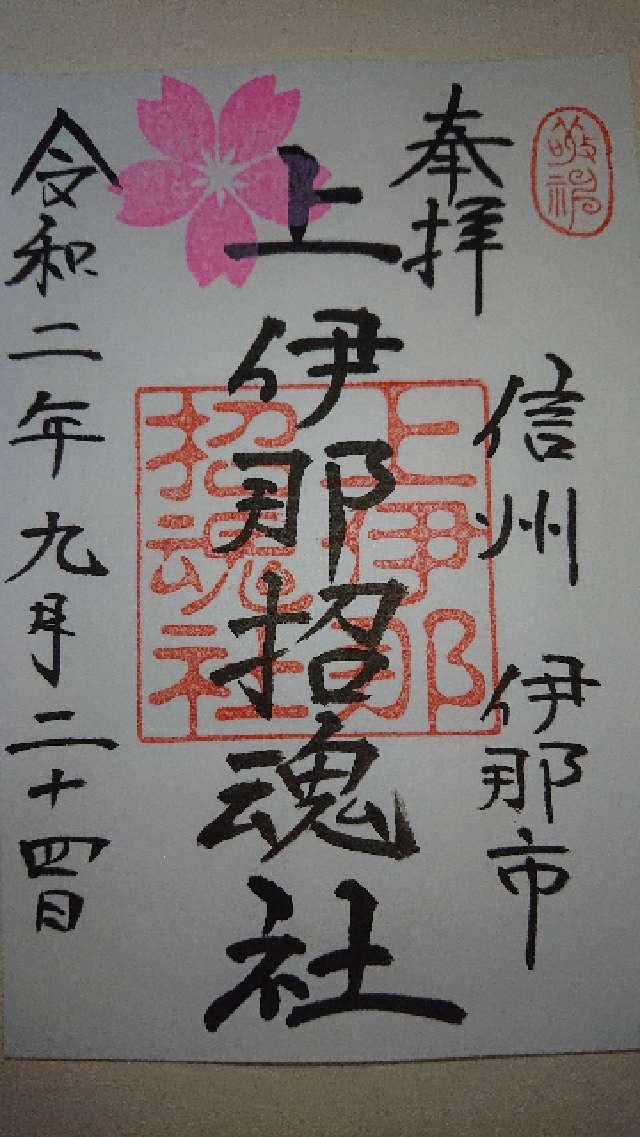 敬神
奉拝
信州 伊那市
上伊那招魂社
上伊那
招魂社
令和二年九月二十四日